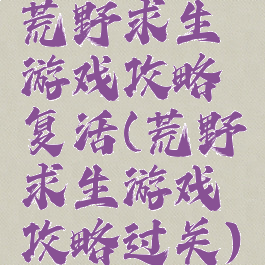 荒野求生
游戏攻略
复活(荒野
求生游戏
攻略过关)